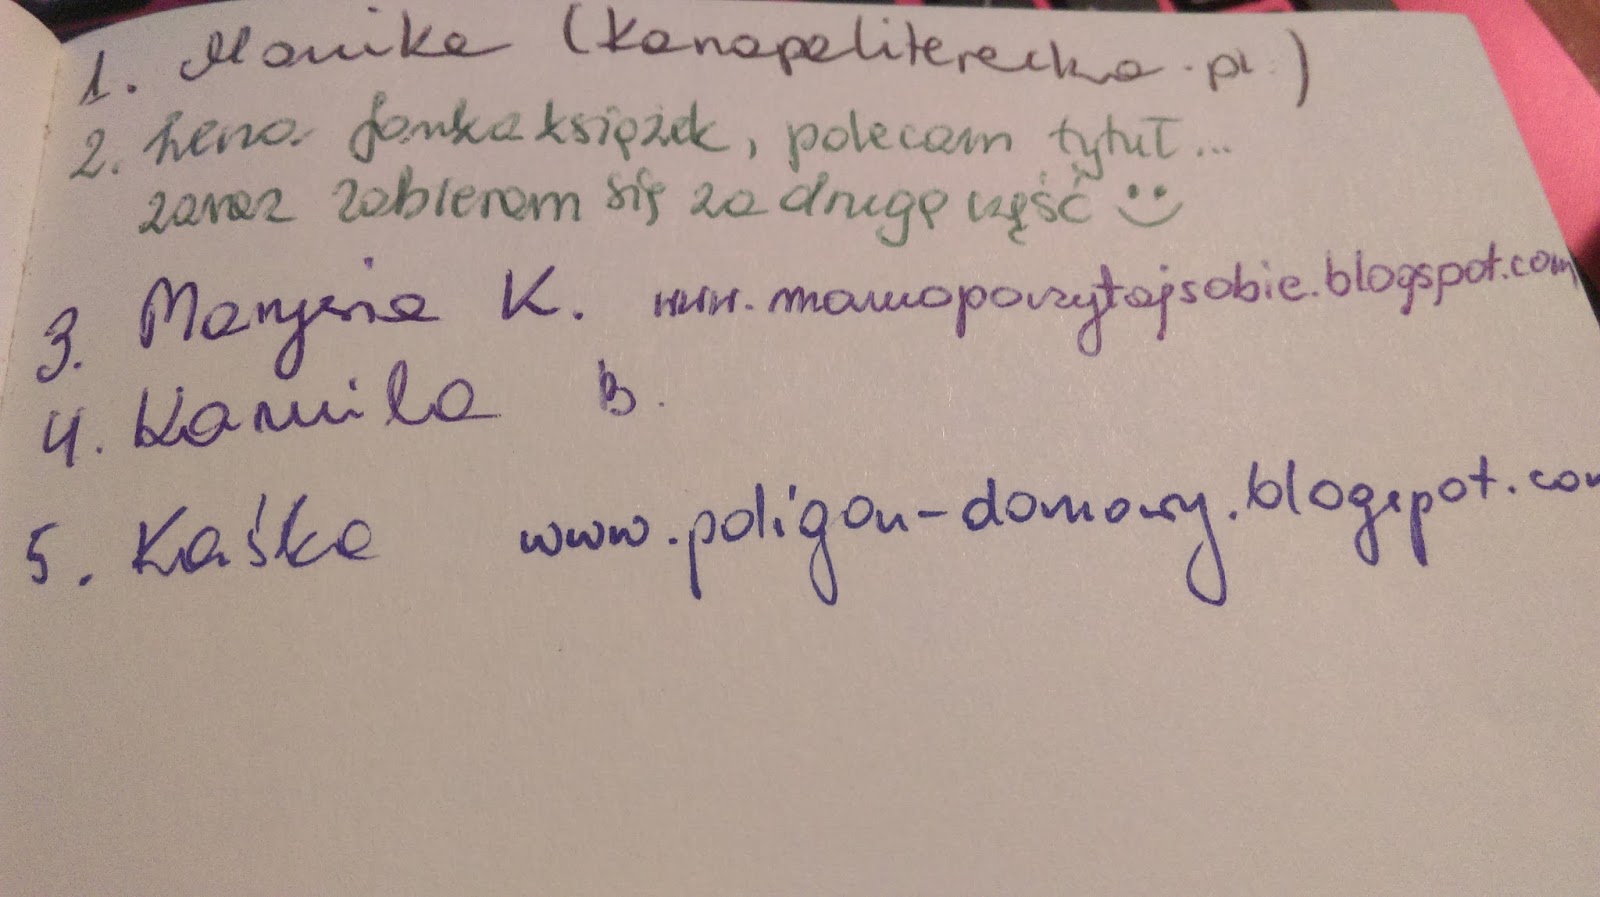 1. Monika (kanapaliteracka.pl)
2. Lena fanka książek, polecam tytuł...
zaraz zabieram się za drugą część
3. Marysia K. www.mamopoczytajsobie.blogspot.com
4. Kamila B.
5. Kaśka www.poligon-domowy.blogspot.com